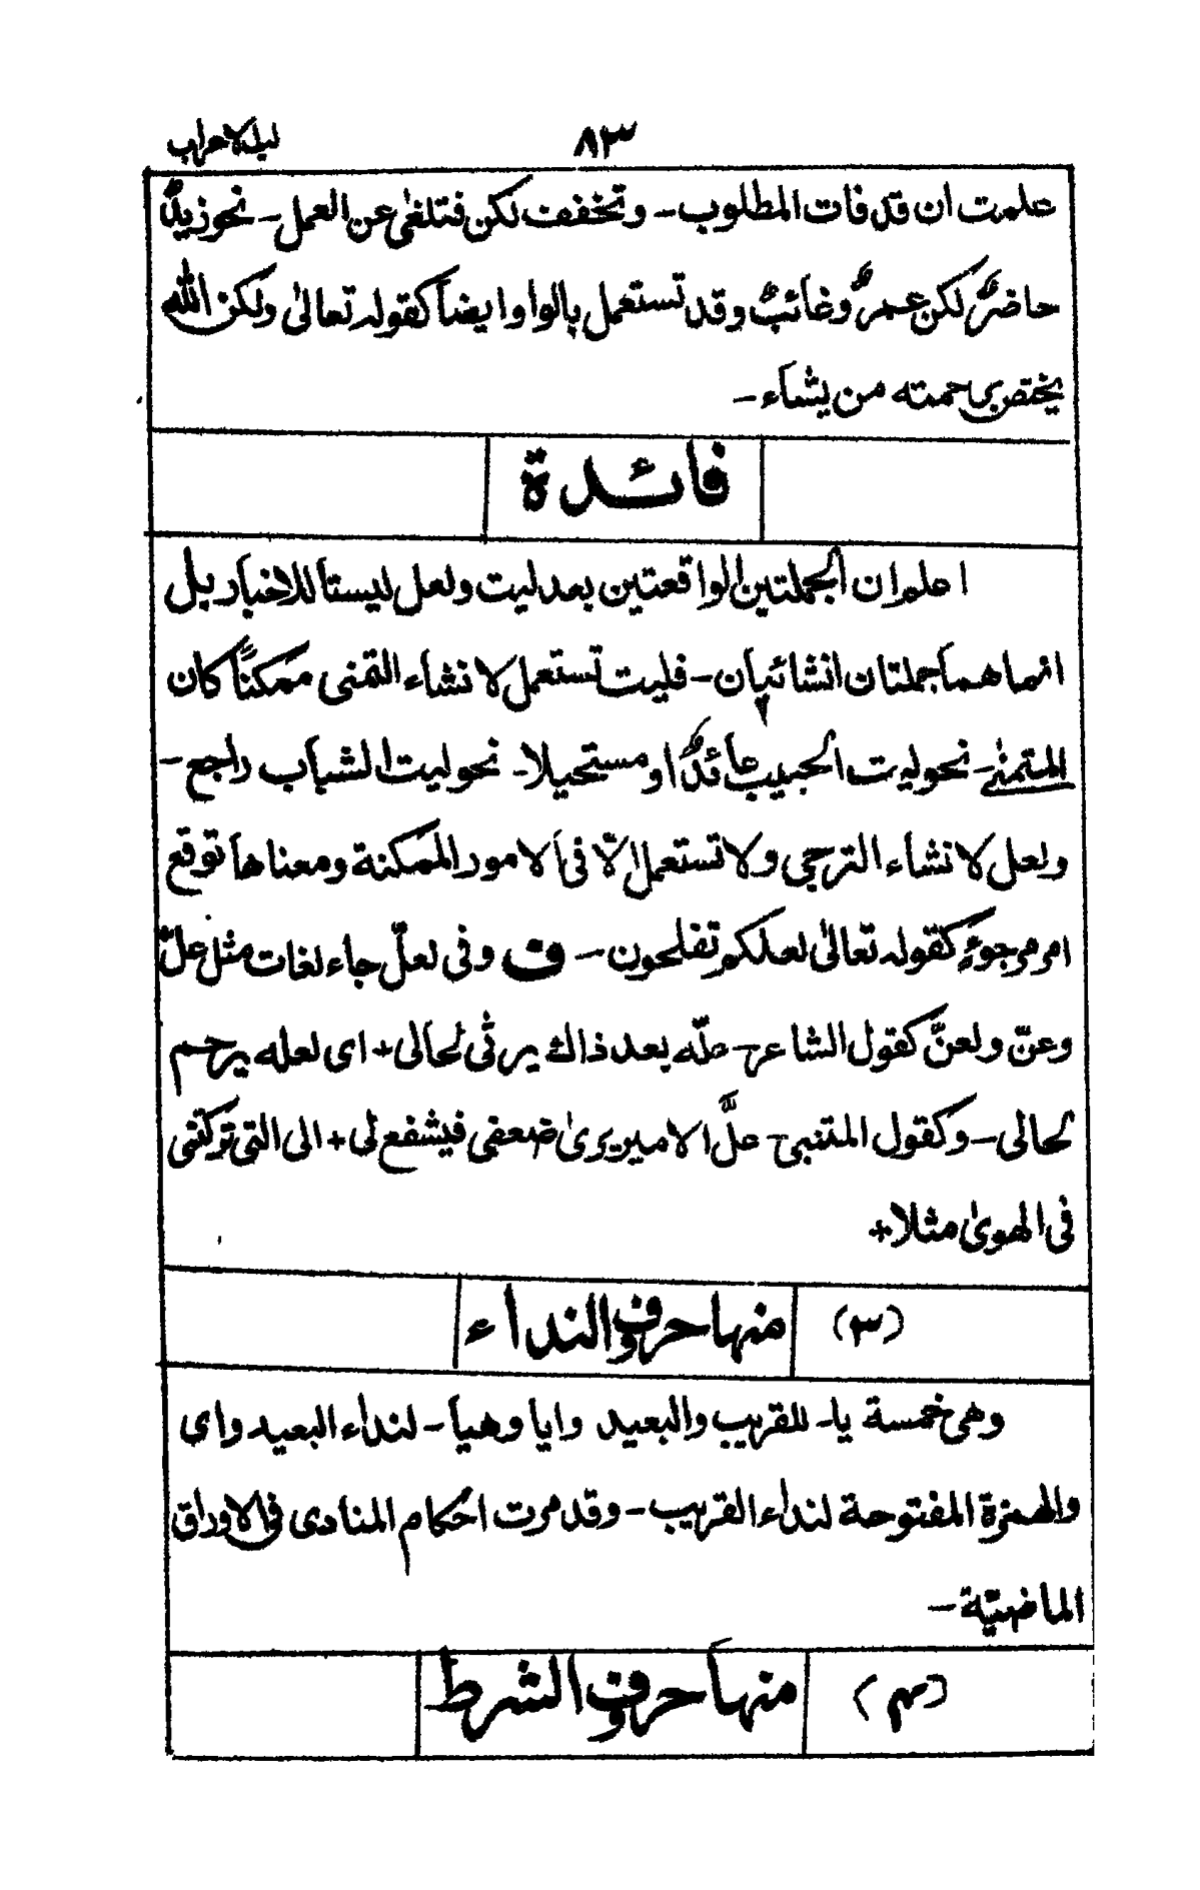 ٨٣ ليل الاعراب
علمت ان قد فات المطلوب۔ وتخفف لكن فتلغىٰ عن العمل۔ نحو زيدٌ
حاضرٌ لكن عمرٌو غائبٌ وقد تستعمل بالواو ايضا كقوله تعالىٰ ولكن الله
يختص برحمته من يشاء۔
فائدة
اعلم ان الجملتين الواقعتين بعد ليت ولعل ليستا للاخبار بل
انما هما جملتان انشائيان۔ فليت تستعمل لانشاء التمنى ممكنًا كان
المتمنىٰ۔ نحو ليت الحبيب عائدٌ او مستحيلا۔ نحو ليت الشباب راجع۔
ولعل لانشاء الترجى ولا تستعمل الّا فى الامور الممكنة ومعناها توقع
امر مرجوءٍ كقوله تعالىٰ لعلكم تفلحون۔ ف وفى لعلّ جاء لغات مثل علّ
وعنّ ولعنّ كقول الشاعر۔ علّه بعد ذاك يرثى لحالى+ اى لعله يرحم
لحالى۔ وكقول المتنبى۔ علَّ الامير يرىٰ ضعفى فيشفع لى+ الى التى تركتنى
فى الهوىٰ مثلا+
(٣) منها حروف النداء
وهى خمسة يا۔ للقريب والبعيد وايا وهيا۔ لنداء البعيد واى
والهمزة المفتوحة لنداء القريب۔ وقد مرت احكام المنادى فى الاوراق
الماضيّة۔
(۴) منها حروف الشرط